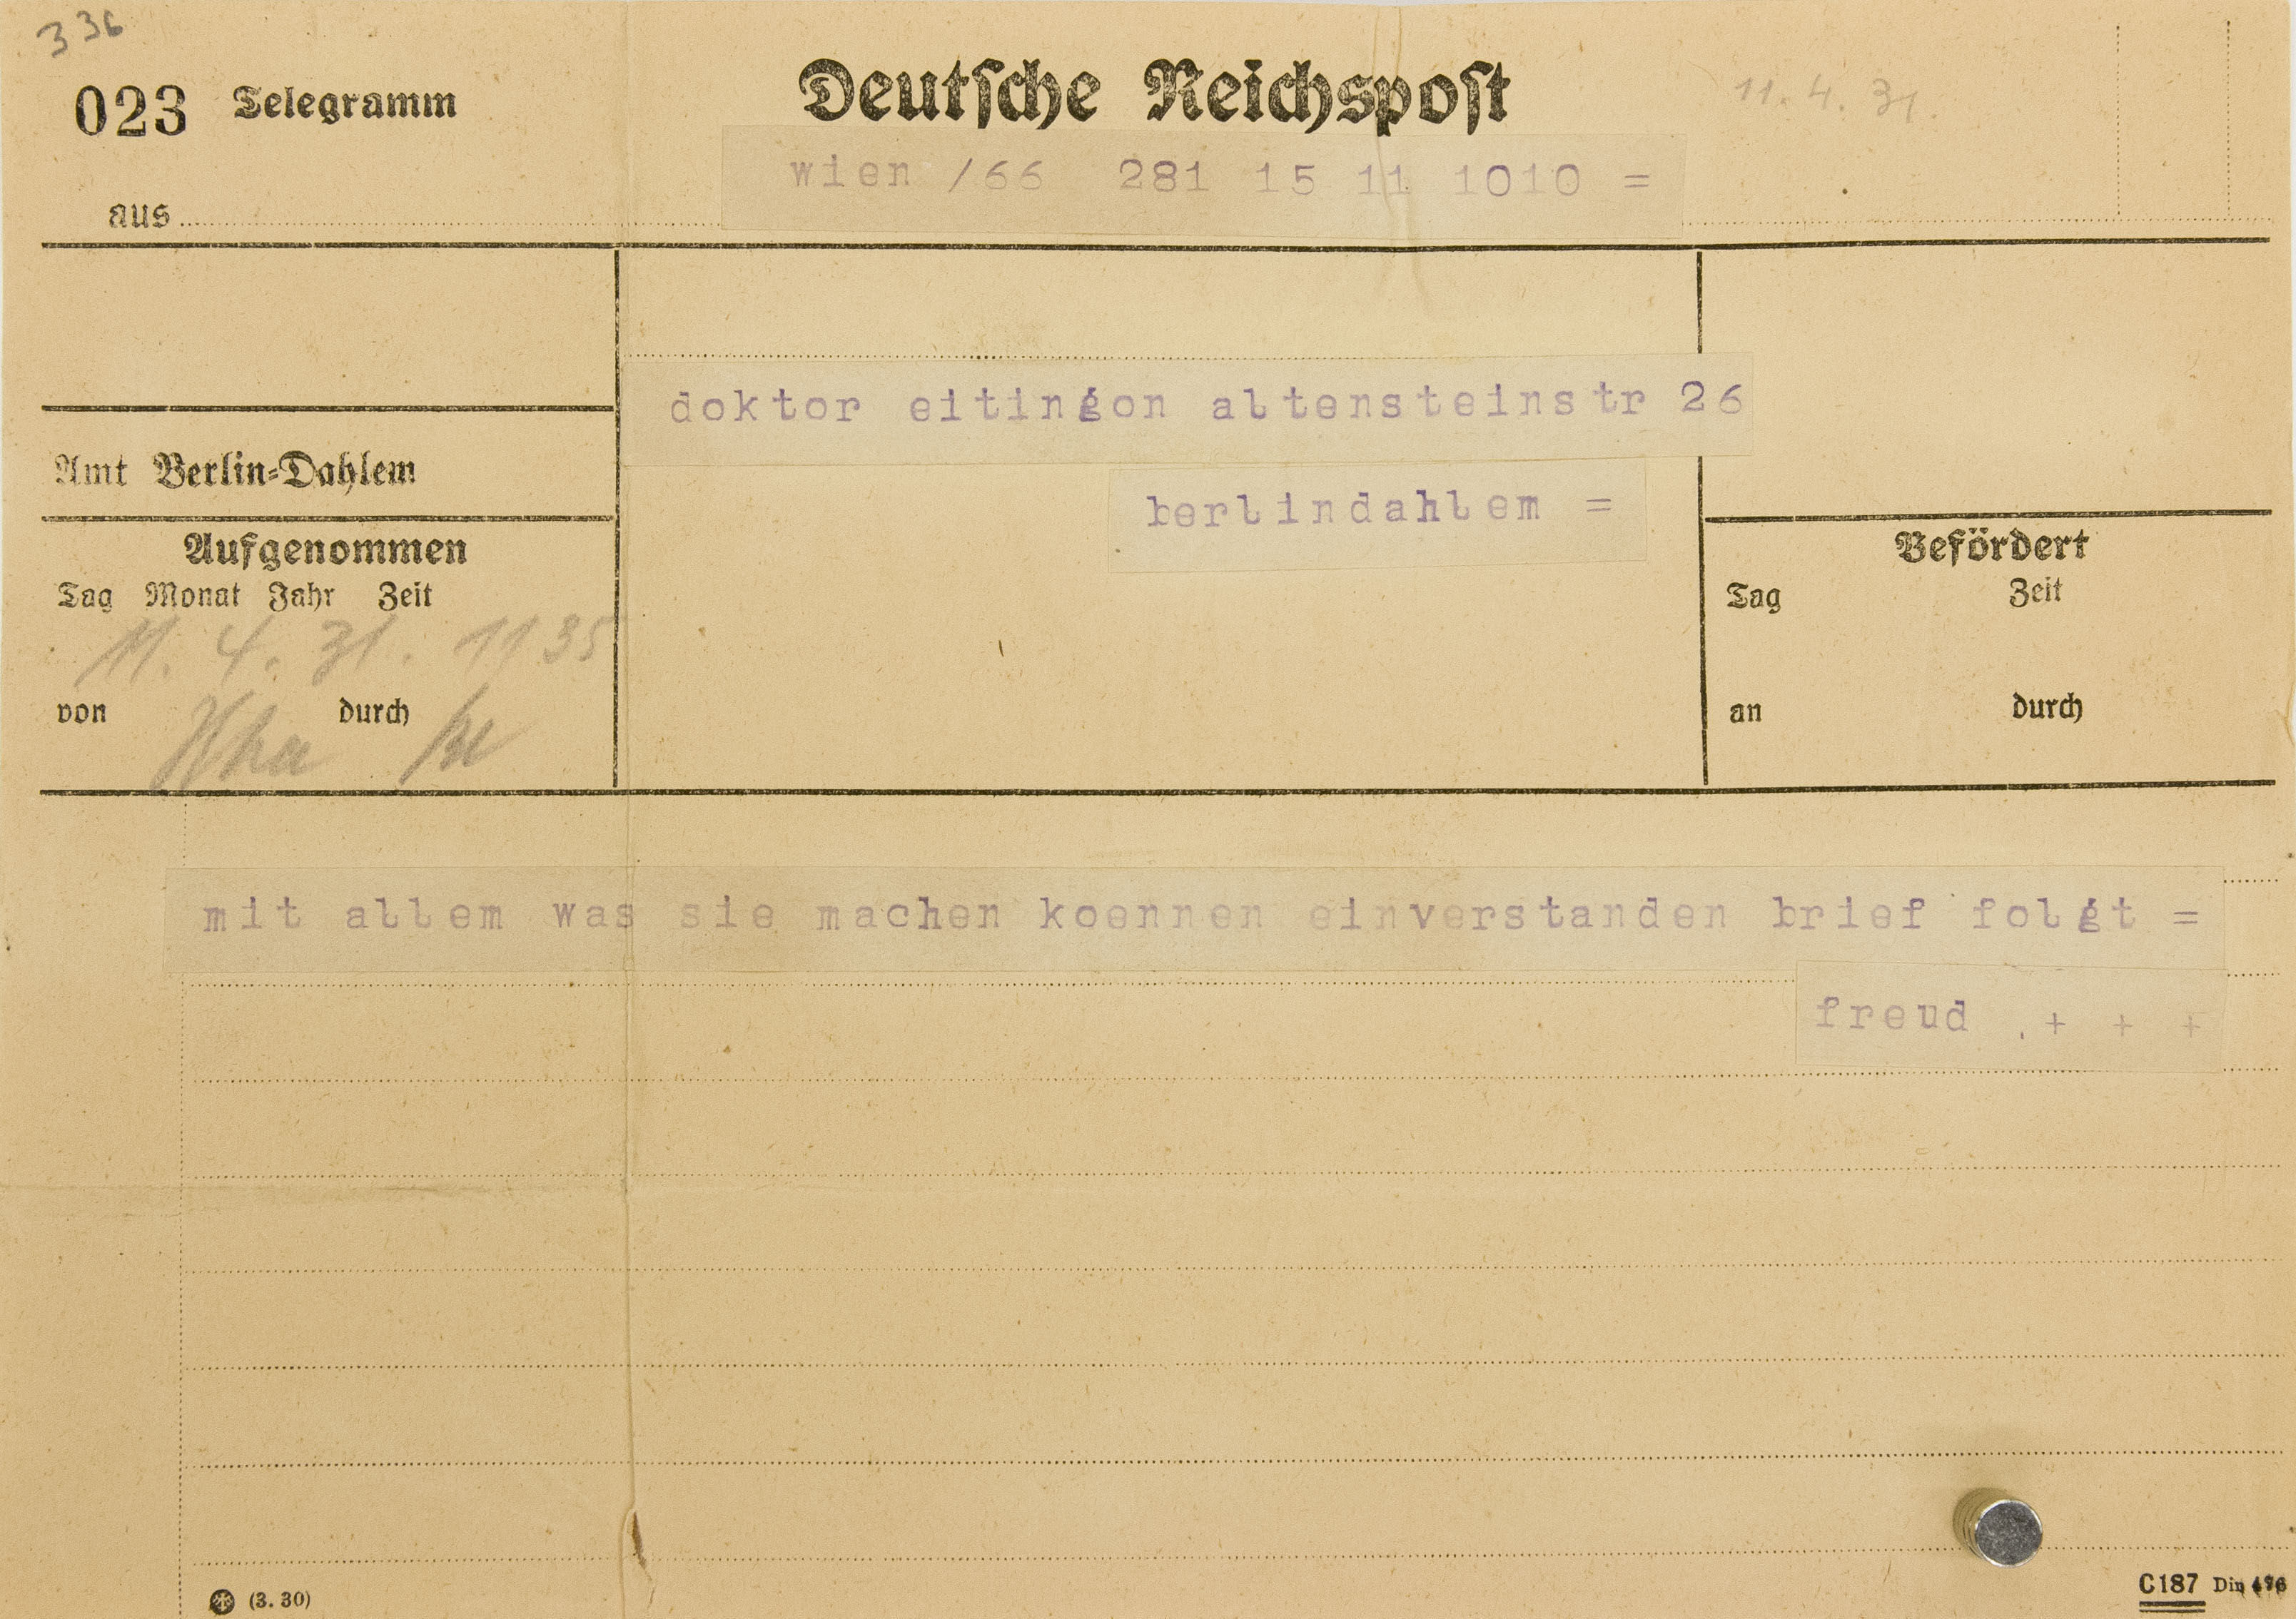 336
023 Telegramm
Deutsche Reichspost
11. 4. 31.
wien /66 281 15 11 1010 =
aus
doktor eitingon altensteinstr 26
Amt Berlin-Dahlem
berlindahlem =
Aufgenommen
Tag Monat Jahr Zeit
11. 4. 31. 1135
von durch
Befördert
Tag Zeit
an durch
mit allem was sie machen koennen einverstanden brief folgt =
freud .+ + +
(3. 30)
C187 Din 476